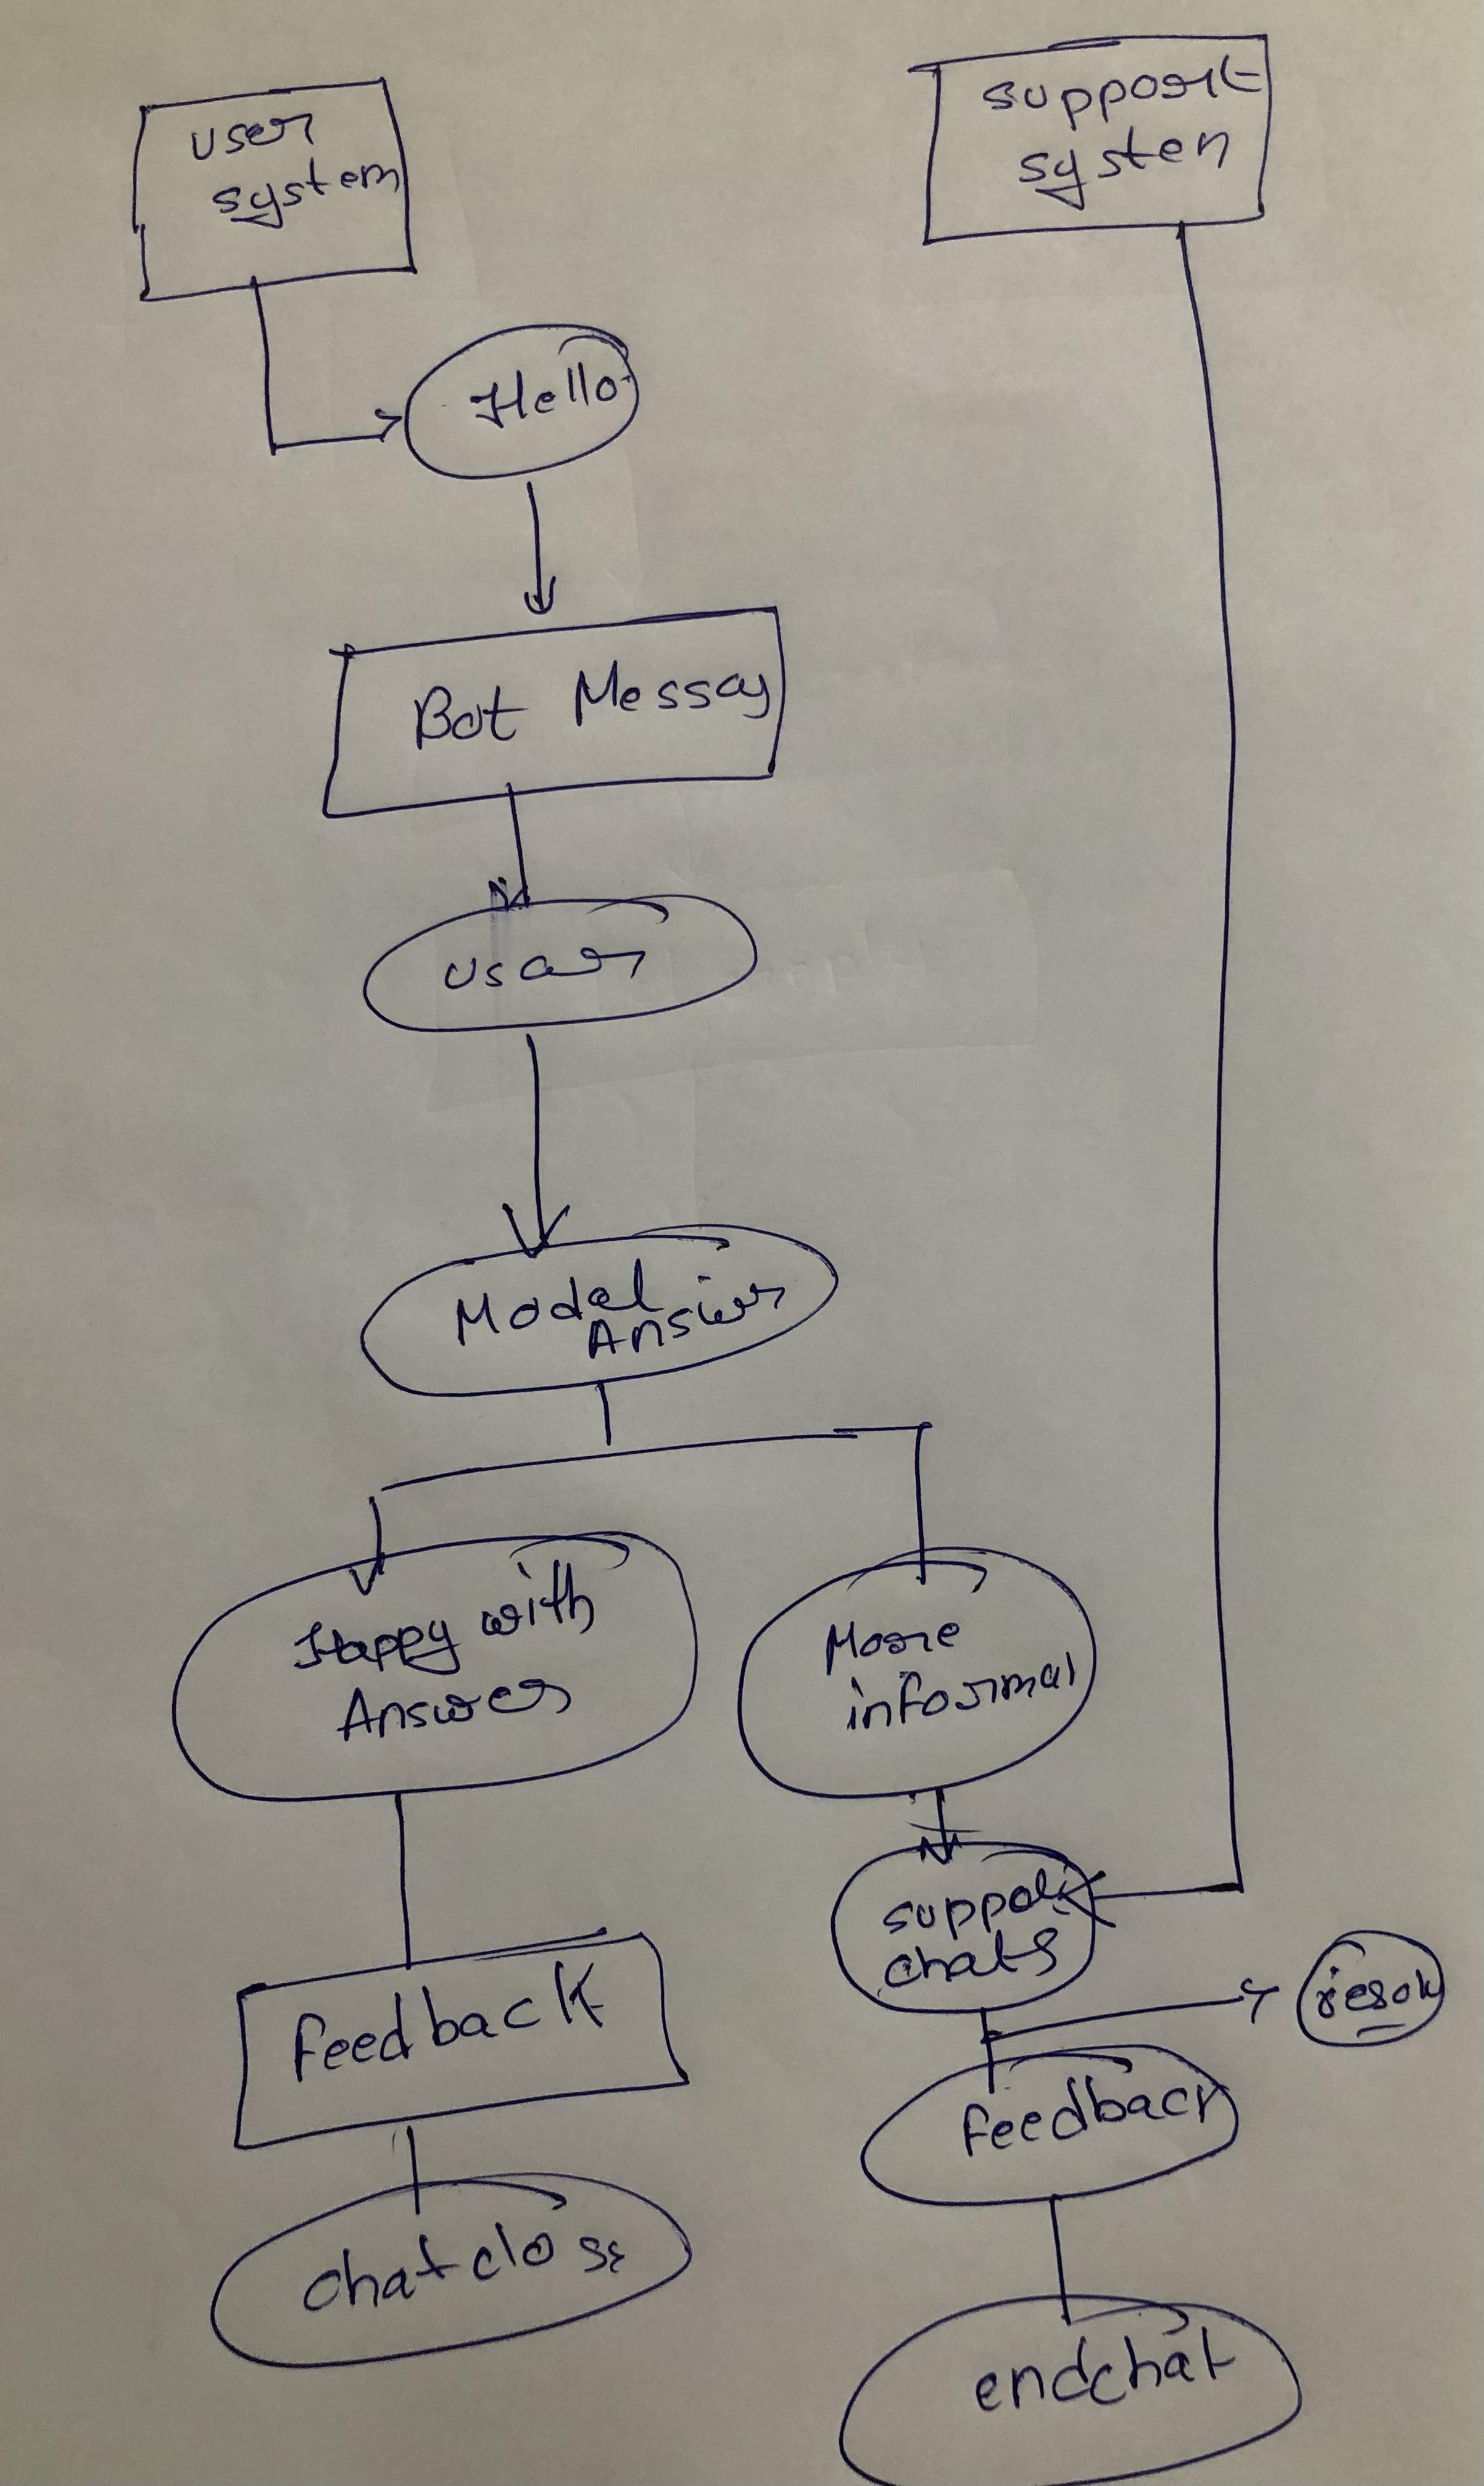 user
system
support
systen
Hello
Bot Messag
user
Model
Answer
Happy with
Answer
More
informal
support
chats
resol
feedback
feedback
chatclose
endchat